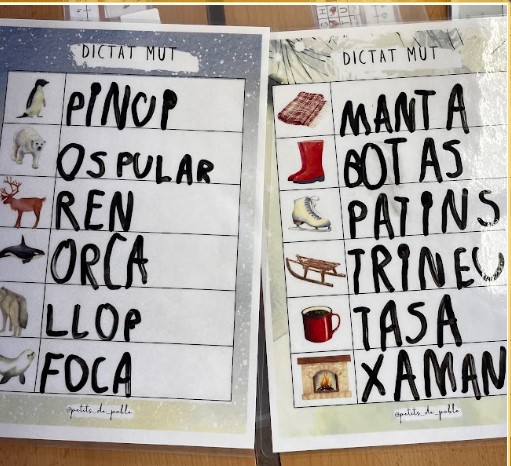 DICTAT MUT
PINUP
OSPULAR
REN
ORCA
LLOP
FOCA
@petits_de_pablo
DICTAT MUT
MANTA
BOTAS
PATINS
TRINEU
TASA
XAMAN
@petits_de_pablo